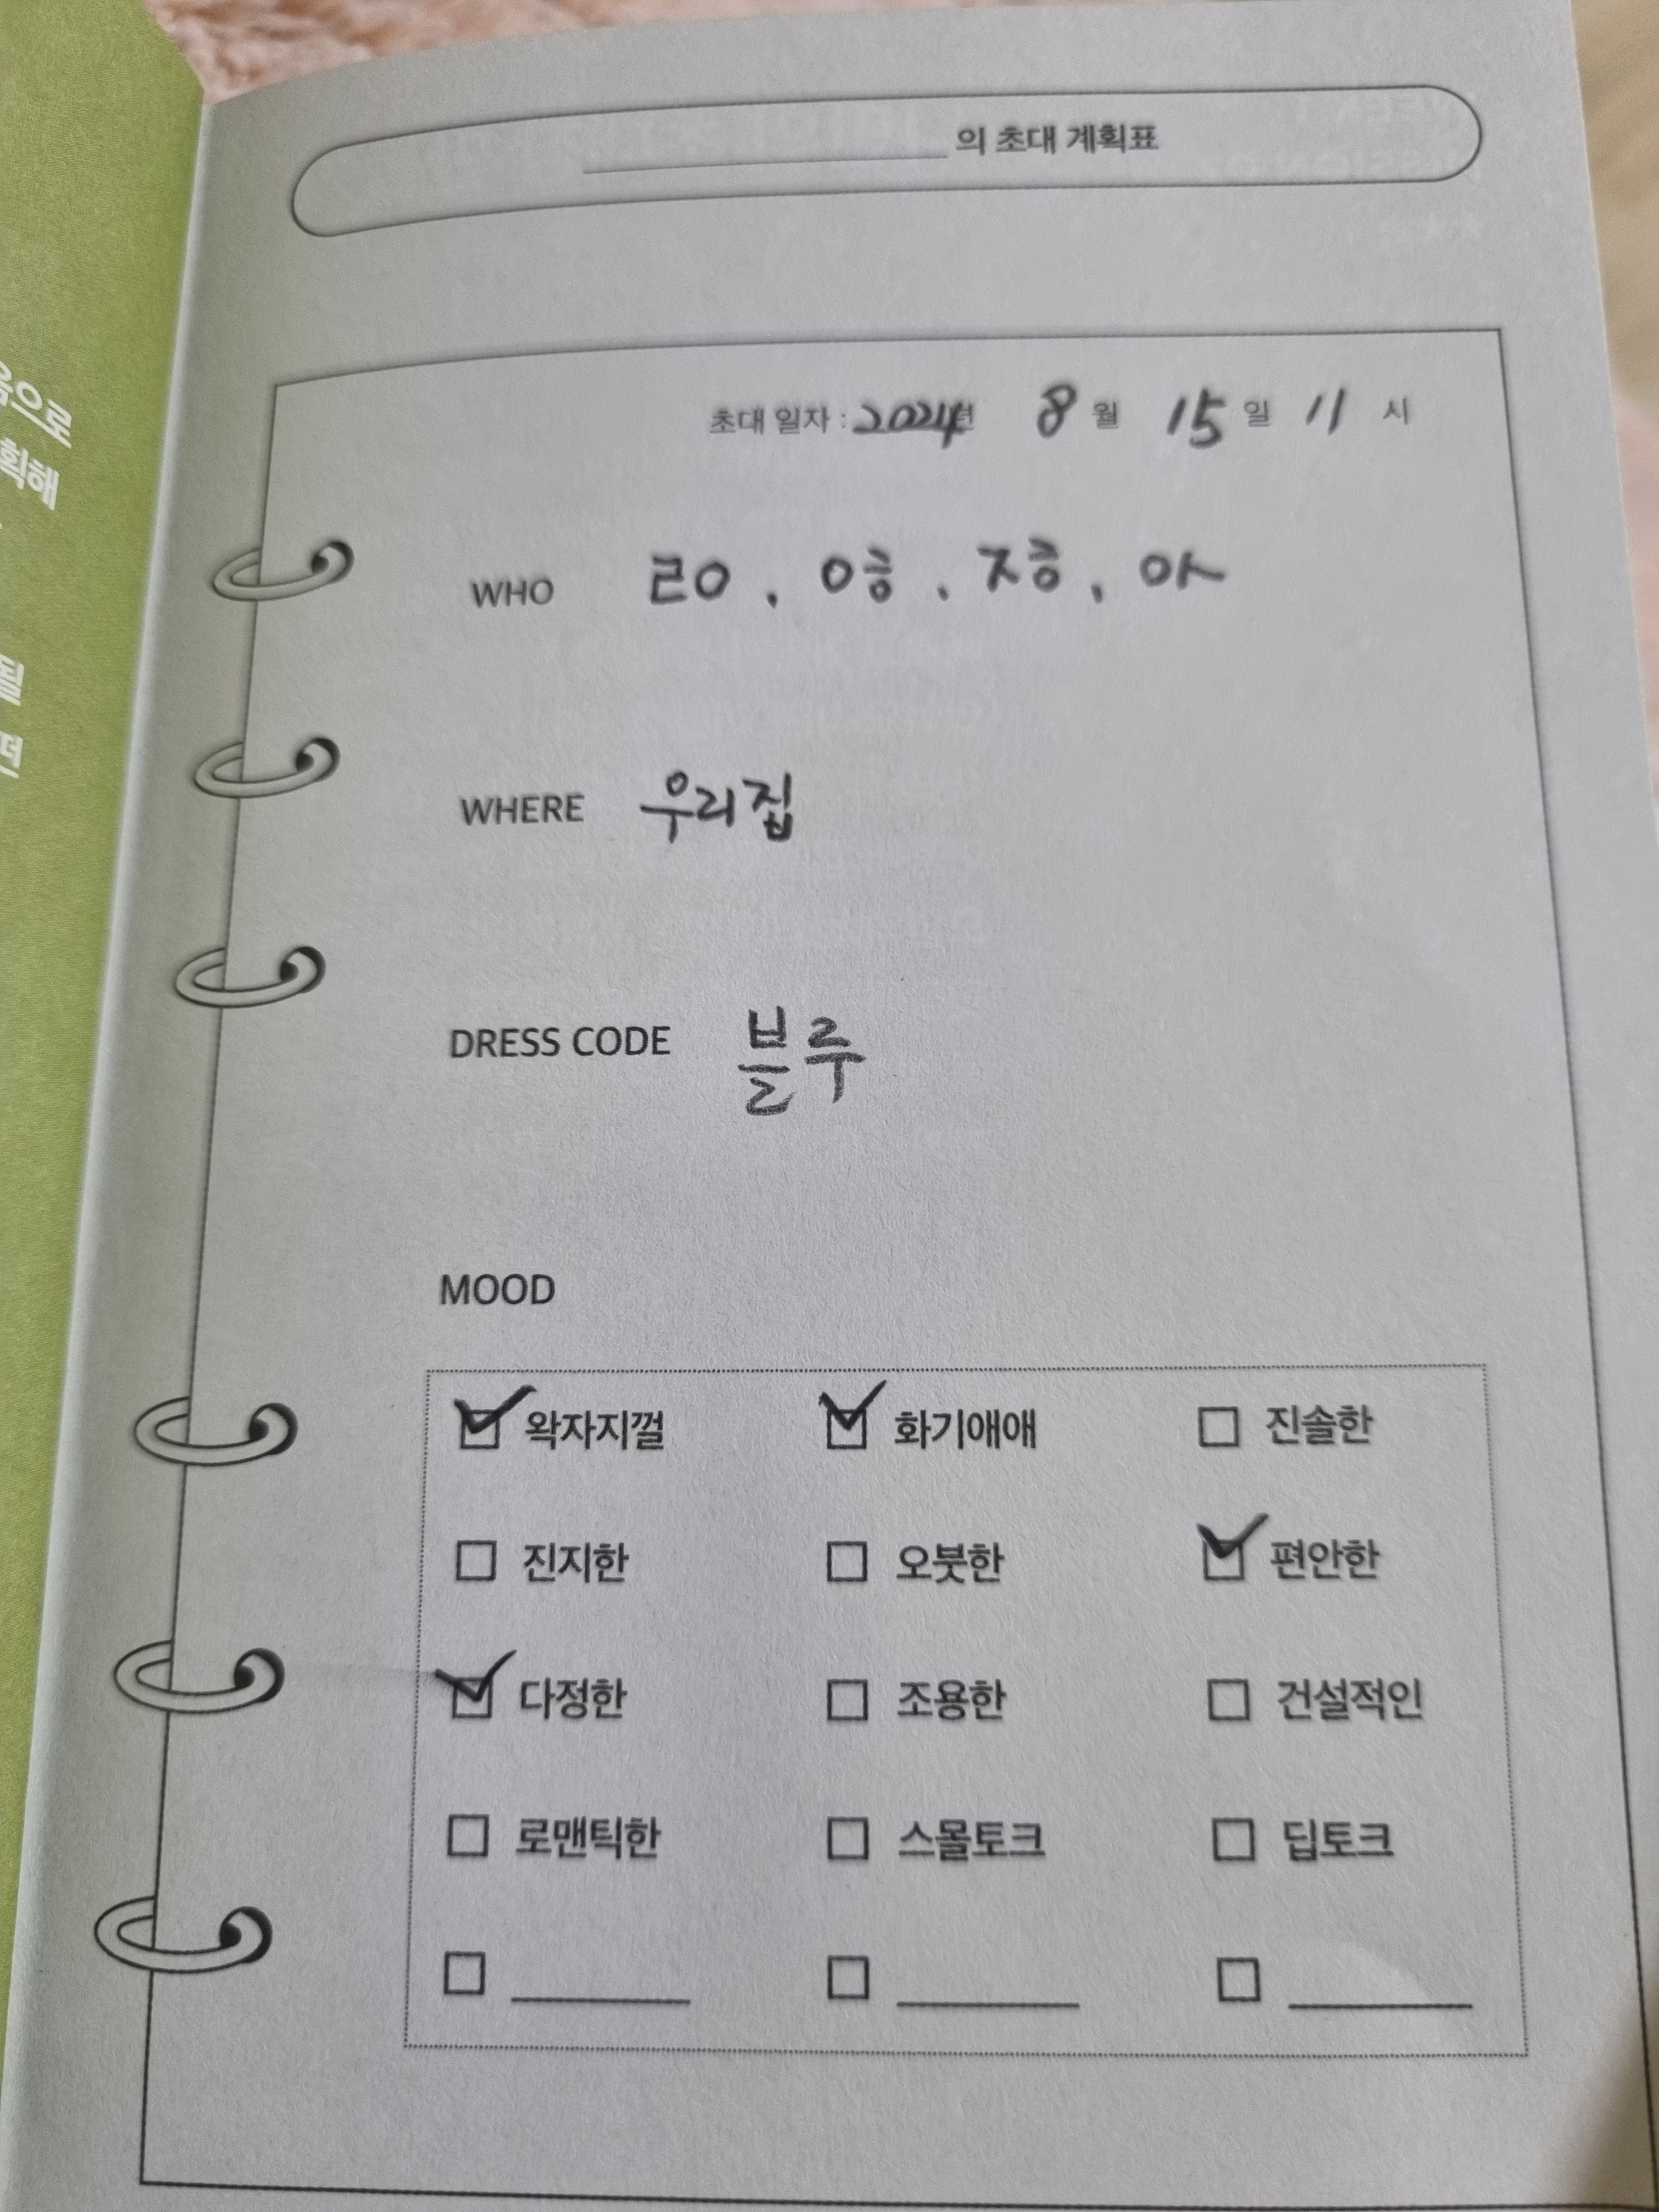 음으로
획해
될
의 초대 계획표
초대 일자 : 2024년 8월 15일 11시
WHO ㄹㅇ, ㅇㅎ, ㅈㅎ, ㅇㅅ
WHERE 우리집
DRESS CODE 블루
MOOD
왁자지껄 화기애애 진솔한
진지한 오붓한 편안한
다정한 조용한 건설적인
로맨틱한 스몰토크 딥토크